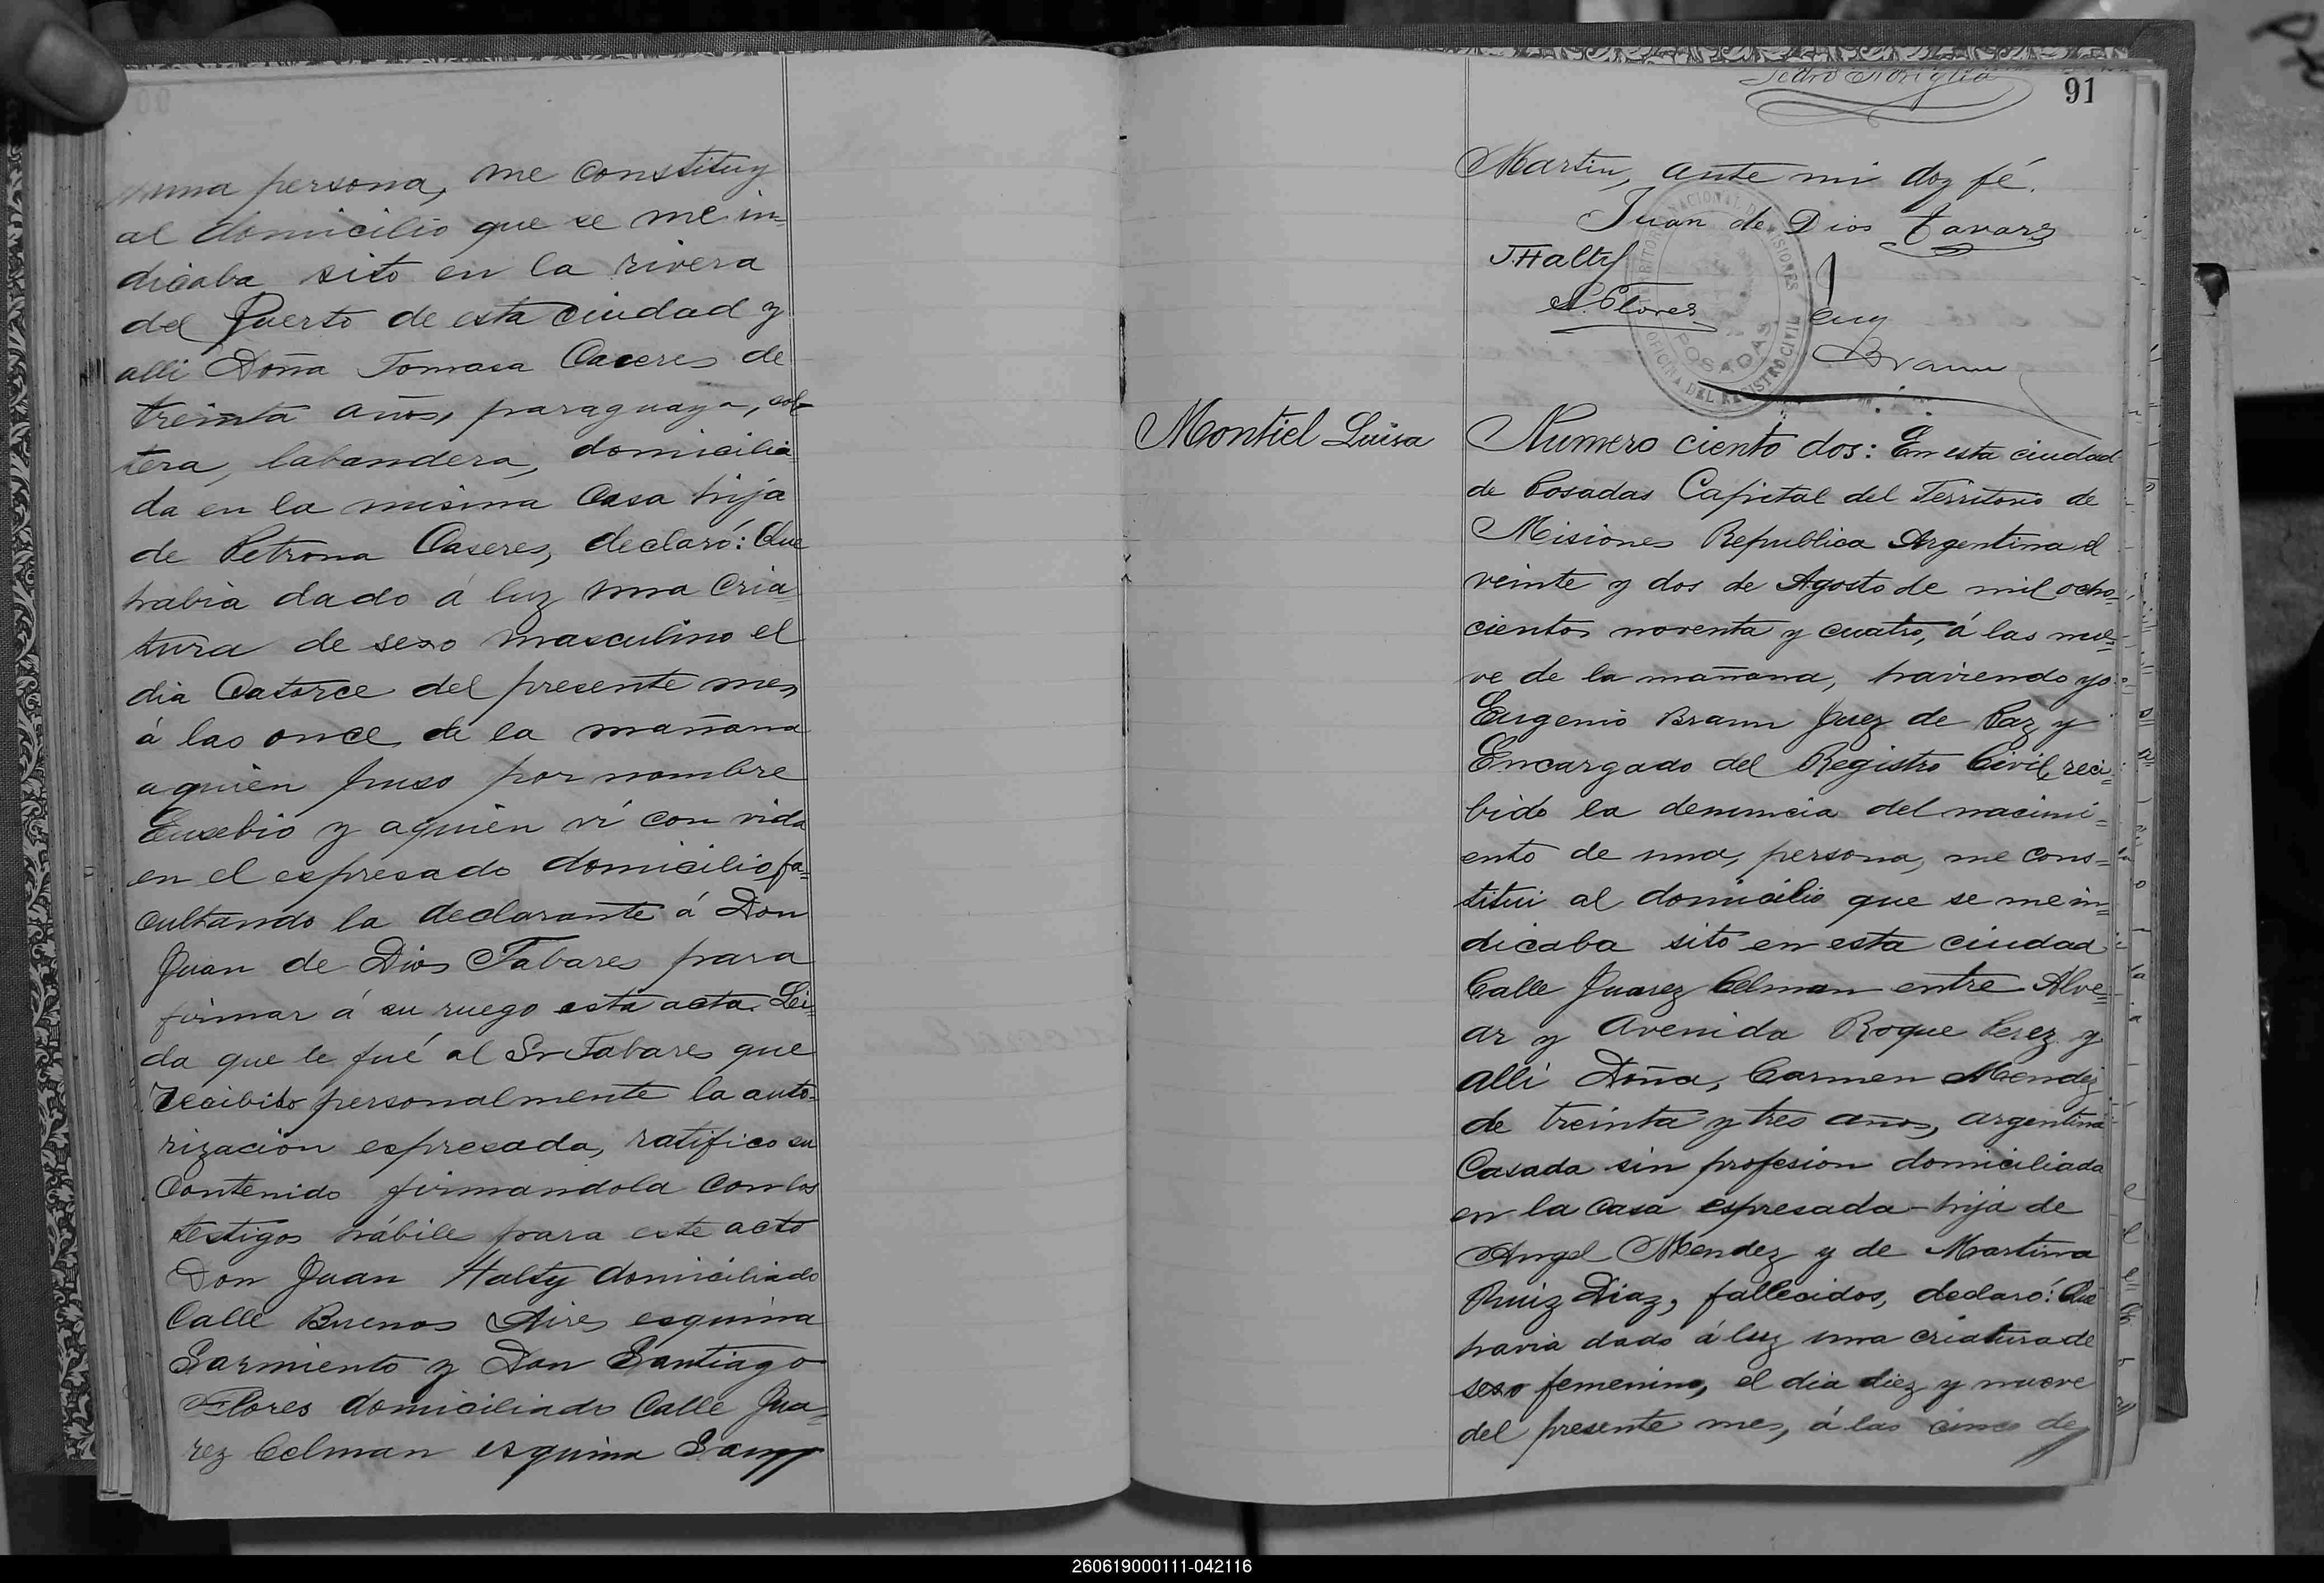 una persona, me constituy
al domicilio que se me in=
dicaba sito en la rivera
del Puerto de esta ciudad y
alli Doña Tomasa Caceres de
treinta años, paraguaya, sol-
tera, labandera, domicilia-
da en la misima Casa hija
de Petrona Caseres, declaró: Que
habia dado á luz una cria-
tura de sexo masculino el
dia Catorce del presente mes
á las once de la mañana
aquien puso por nombre
Eusebio y aquien ví con vida
en el espresado domicilio fa=
cultando la declarante á Don
Juan de Dios Tabares para
firmar á su ruego esta acta. Lei=
da que le fué al Sr Tabares que
recibido personalmente la auto-
rizacion espresada, ratifico su
Contenido firmandola con los
testigos hábiles para este acto
Don Juan Halty domiciliado
Calle Buenos Aires esquina
Sarmiento y Don Santiago
Flores domiciliado Calle Jua=
rez Celman esquina San
91
Martin, ante mi doy fé.
Juan de Dios Tavarez
J. Halty
S. Flores
Eug
Braun
POSADAS
OFICINA DEL REGISTRO CIVIL
Montiel Luisa
Numero ciento dos: En esta ciudad
de Posadas Capital del Territorio de
Misiones Republica Argentina el
veinte y dos de Agosto de mil ocho=
cientos noventa y cuatro, á las nue=
ve de la mañana, haviendo yo
Eugenio Braun Juez de Paz y
Encargado del Registro Civil, reci=
bido la denuncia del nacimi=
ento de una, persona, me cons=
titui al domicilio que se me in=
dicaba sito en esta ciudad
Calle Juarez Celman entre Alve=
ar y Avenida Roque Perez y
alli Doña, Carmen Mendez
de treinta y tres años, argentina
Casada sin profesion domiciliada
en la casa espresada - hija de
Angel Mendez y de Martina
Ruiz Diaz, fallecidos, declaró: Que
havia dado á luz una criatura de
sexo femenino, el dia diez y nueve
del presente mes, á las cinco de
260619000111-042116